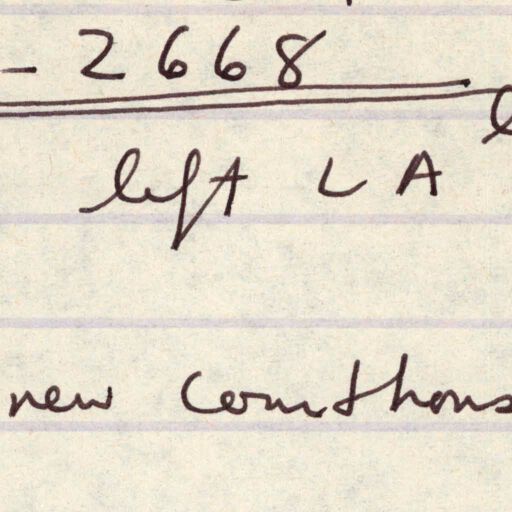 - 2668
left LA
new Courthous